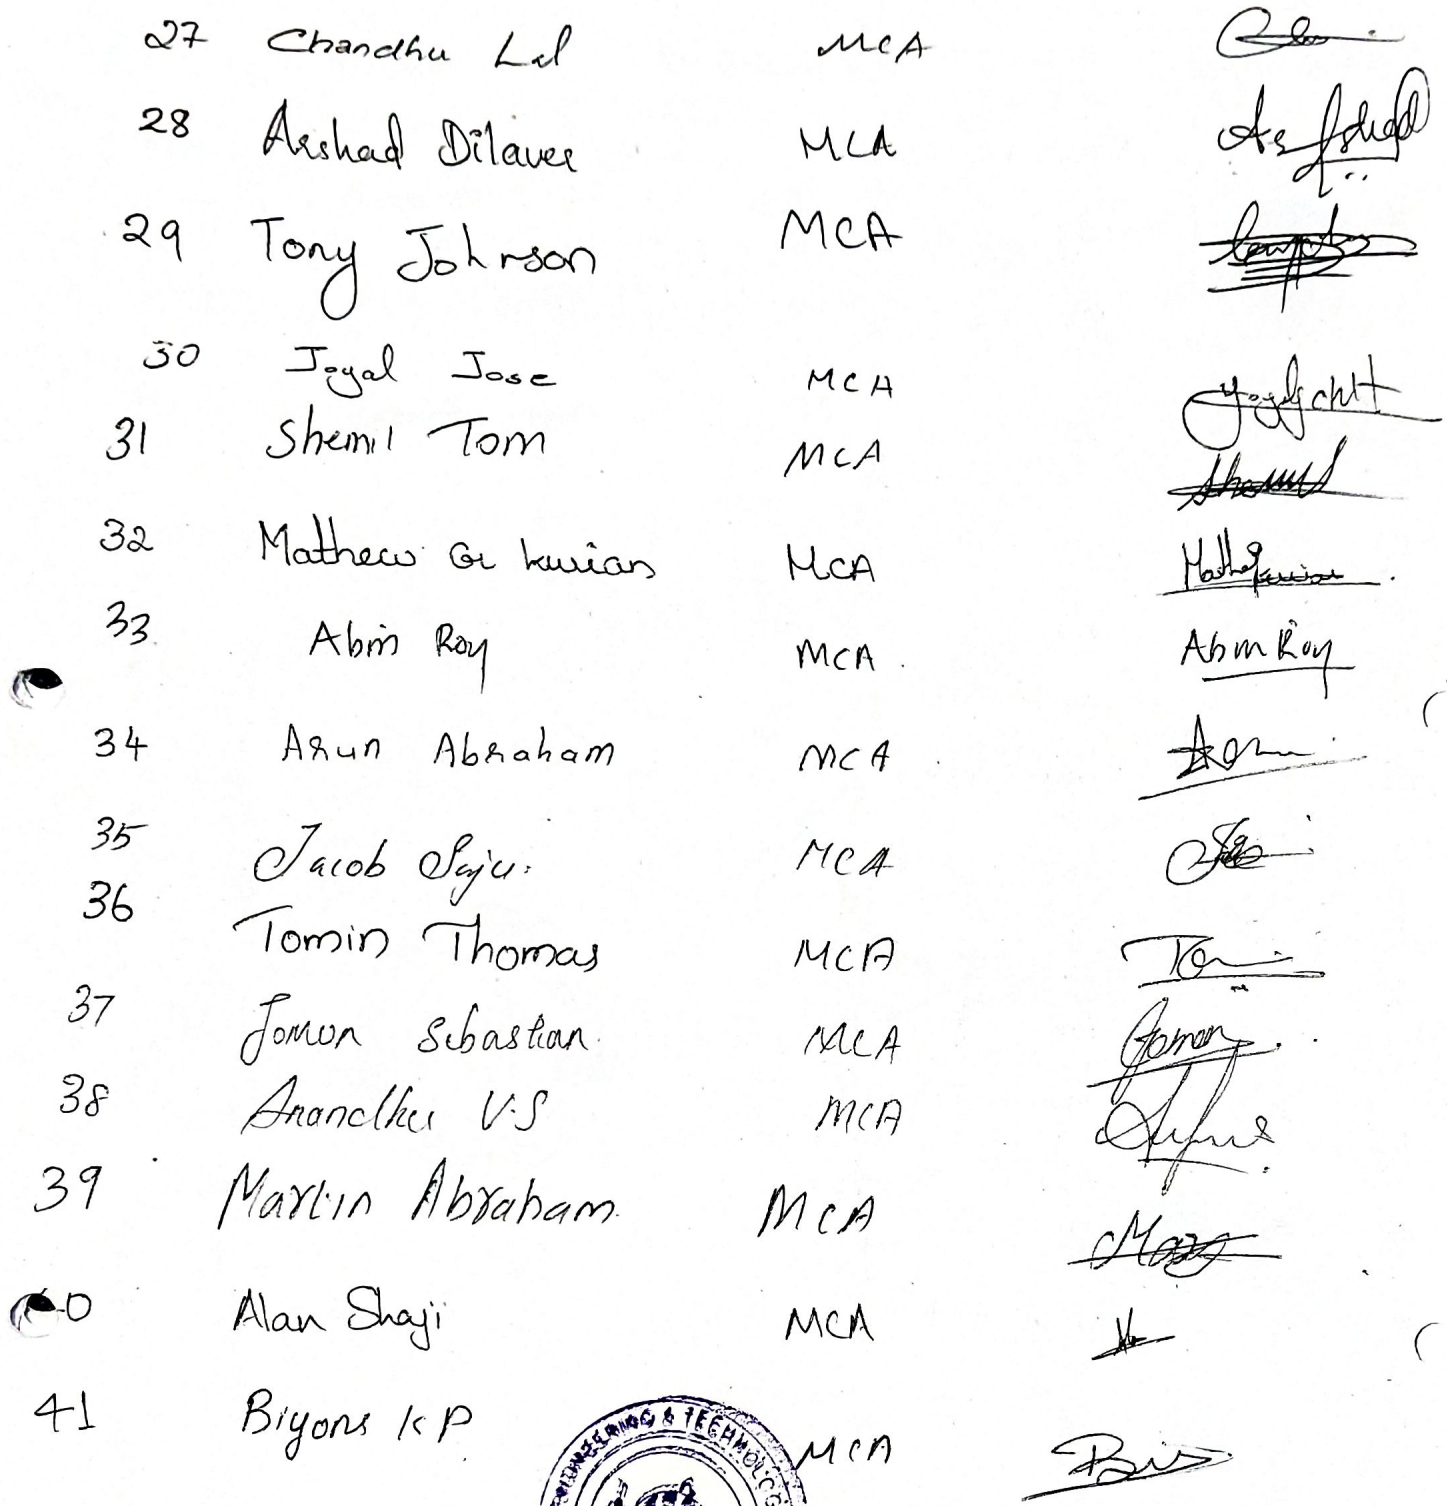 27 Chandhu Lal MCA
28 Arshad Dilaver MCA Arshad
29 Tony Johnson MCA
30 Joyal Jose MCA
31 Shemil Tom MCA Shemil
32 Mathew G Kurian MCA Mathew Kurian
33. Abin Roy MCA. Abin Roy
34 Arun Abraham MCA
35 Jacob Saju. MCA
36 Tomin Thomas MCA
37 Jomon Sebastian. MCA Jomon
38 Anandhu V.S MCA
39 Martin Abraham. MCA
0 Alan Shaji MCA
41 Biyons K P MCA
GINEERING & TECHNOLOG